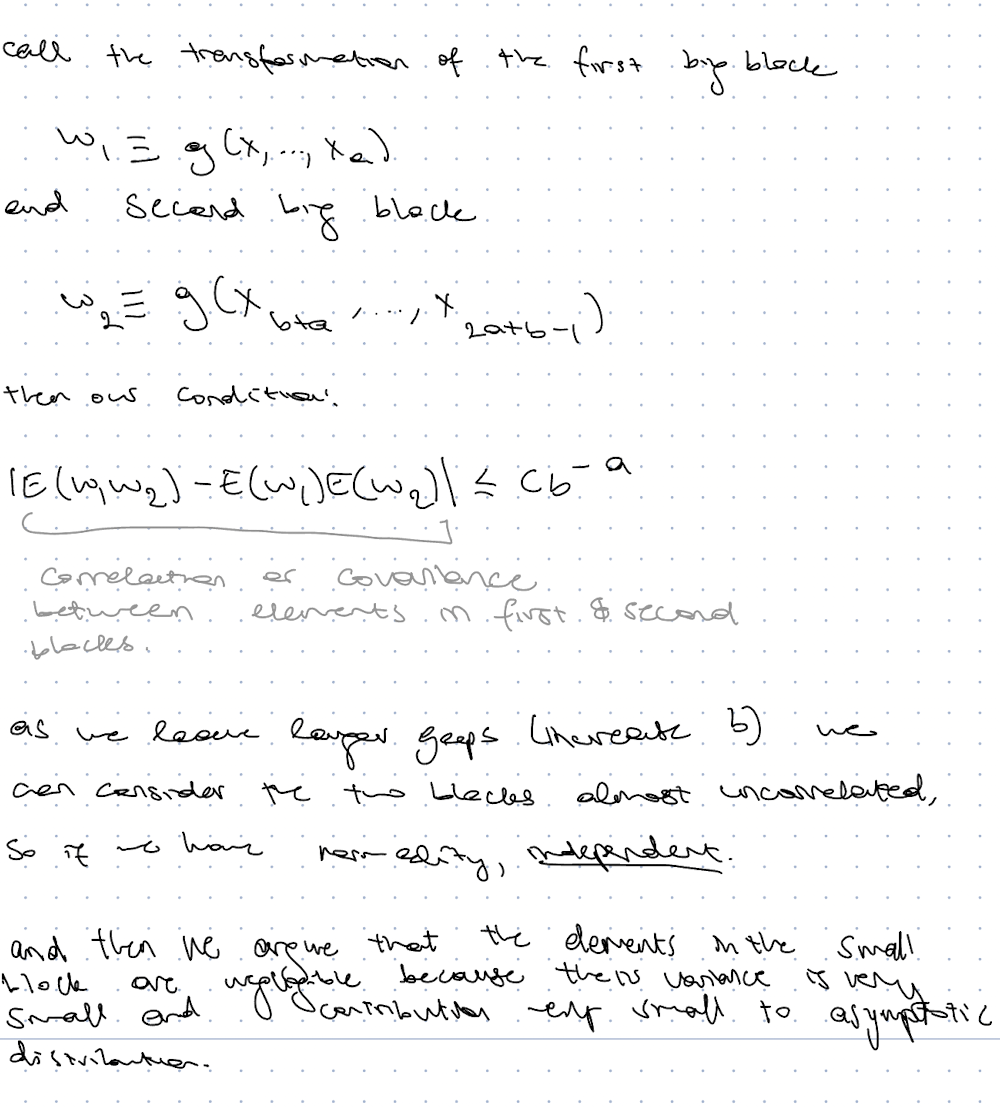 call the transformation of the first big block
w₁ ≡ g(x, ..., xₐ)
and second big block
w₂ ≡ g(x_{b+a}, ..., x_{2a+b-1})
then our condition:
|E(w₁w₂) - E(w₁)E(w₂)| ≤ Cb^{-a}
correlation or covariance
between elements in first & second
blocks.
as we leave larger gaps (increase b) we
can consider the two blocks almost uncorrelated,
so if we have normality, independent.
and then we argue that the elements in the small
block are negligible because their variance is very
small and contribution small to asymptotic
distribution.